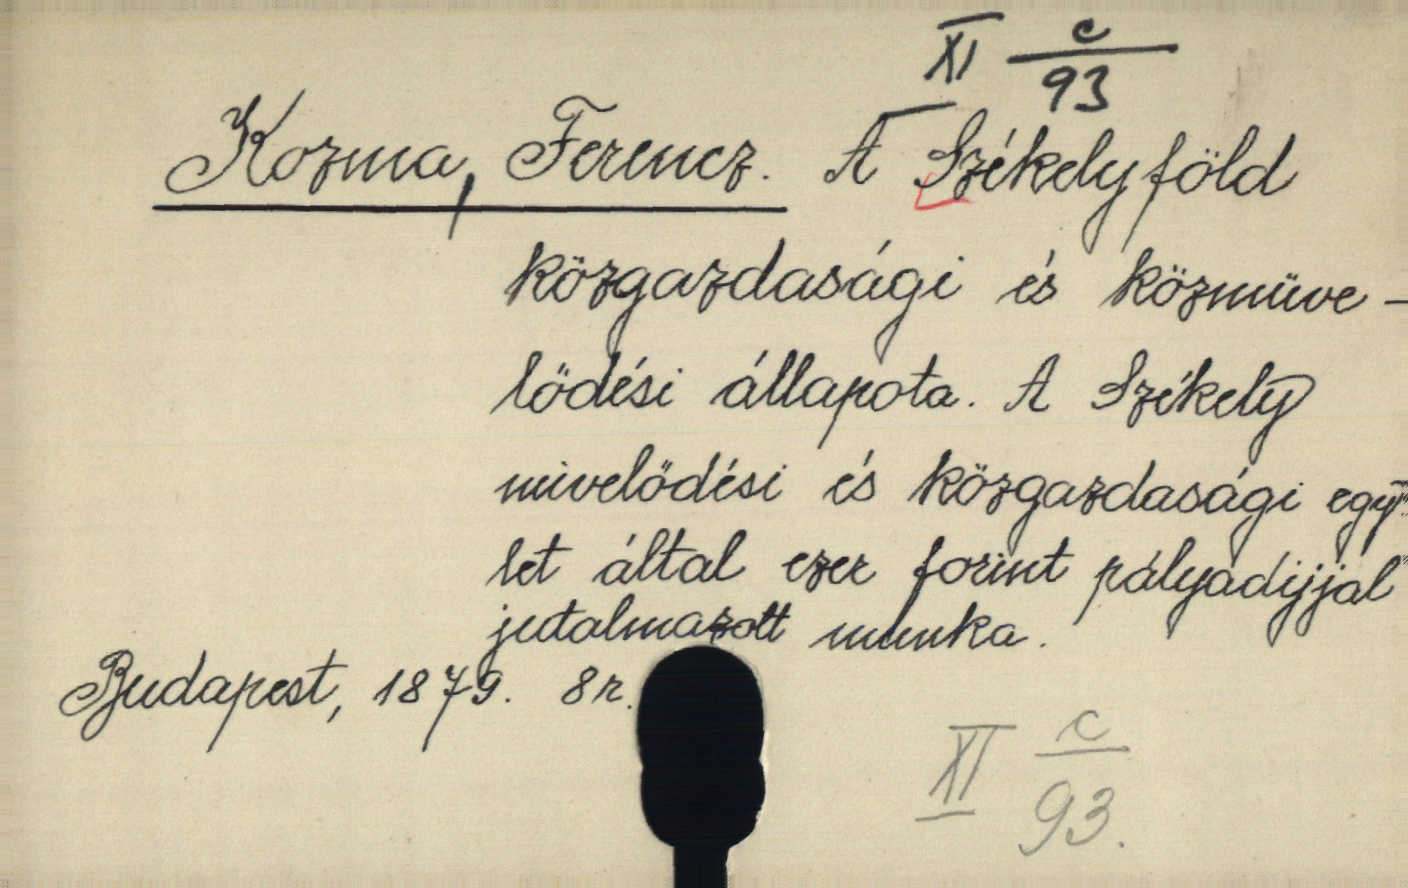 XI c/93
Kozma, Ferencz. A Székely föld
közgazdasági és közmüve-
lödési állapota. A Székely
mivelődési és közgazdasági egy-
let által ezer forint pályadijjal
jutalmazott munka.
Budapest, 1879. 8r.
XI c/93.